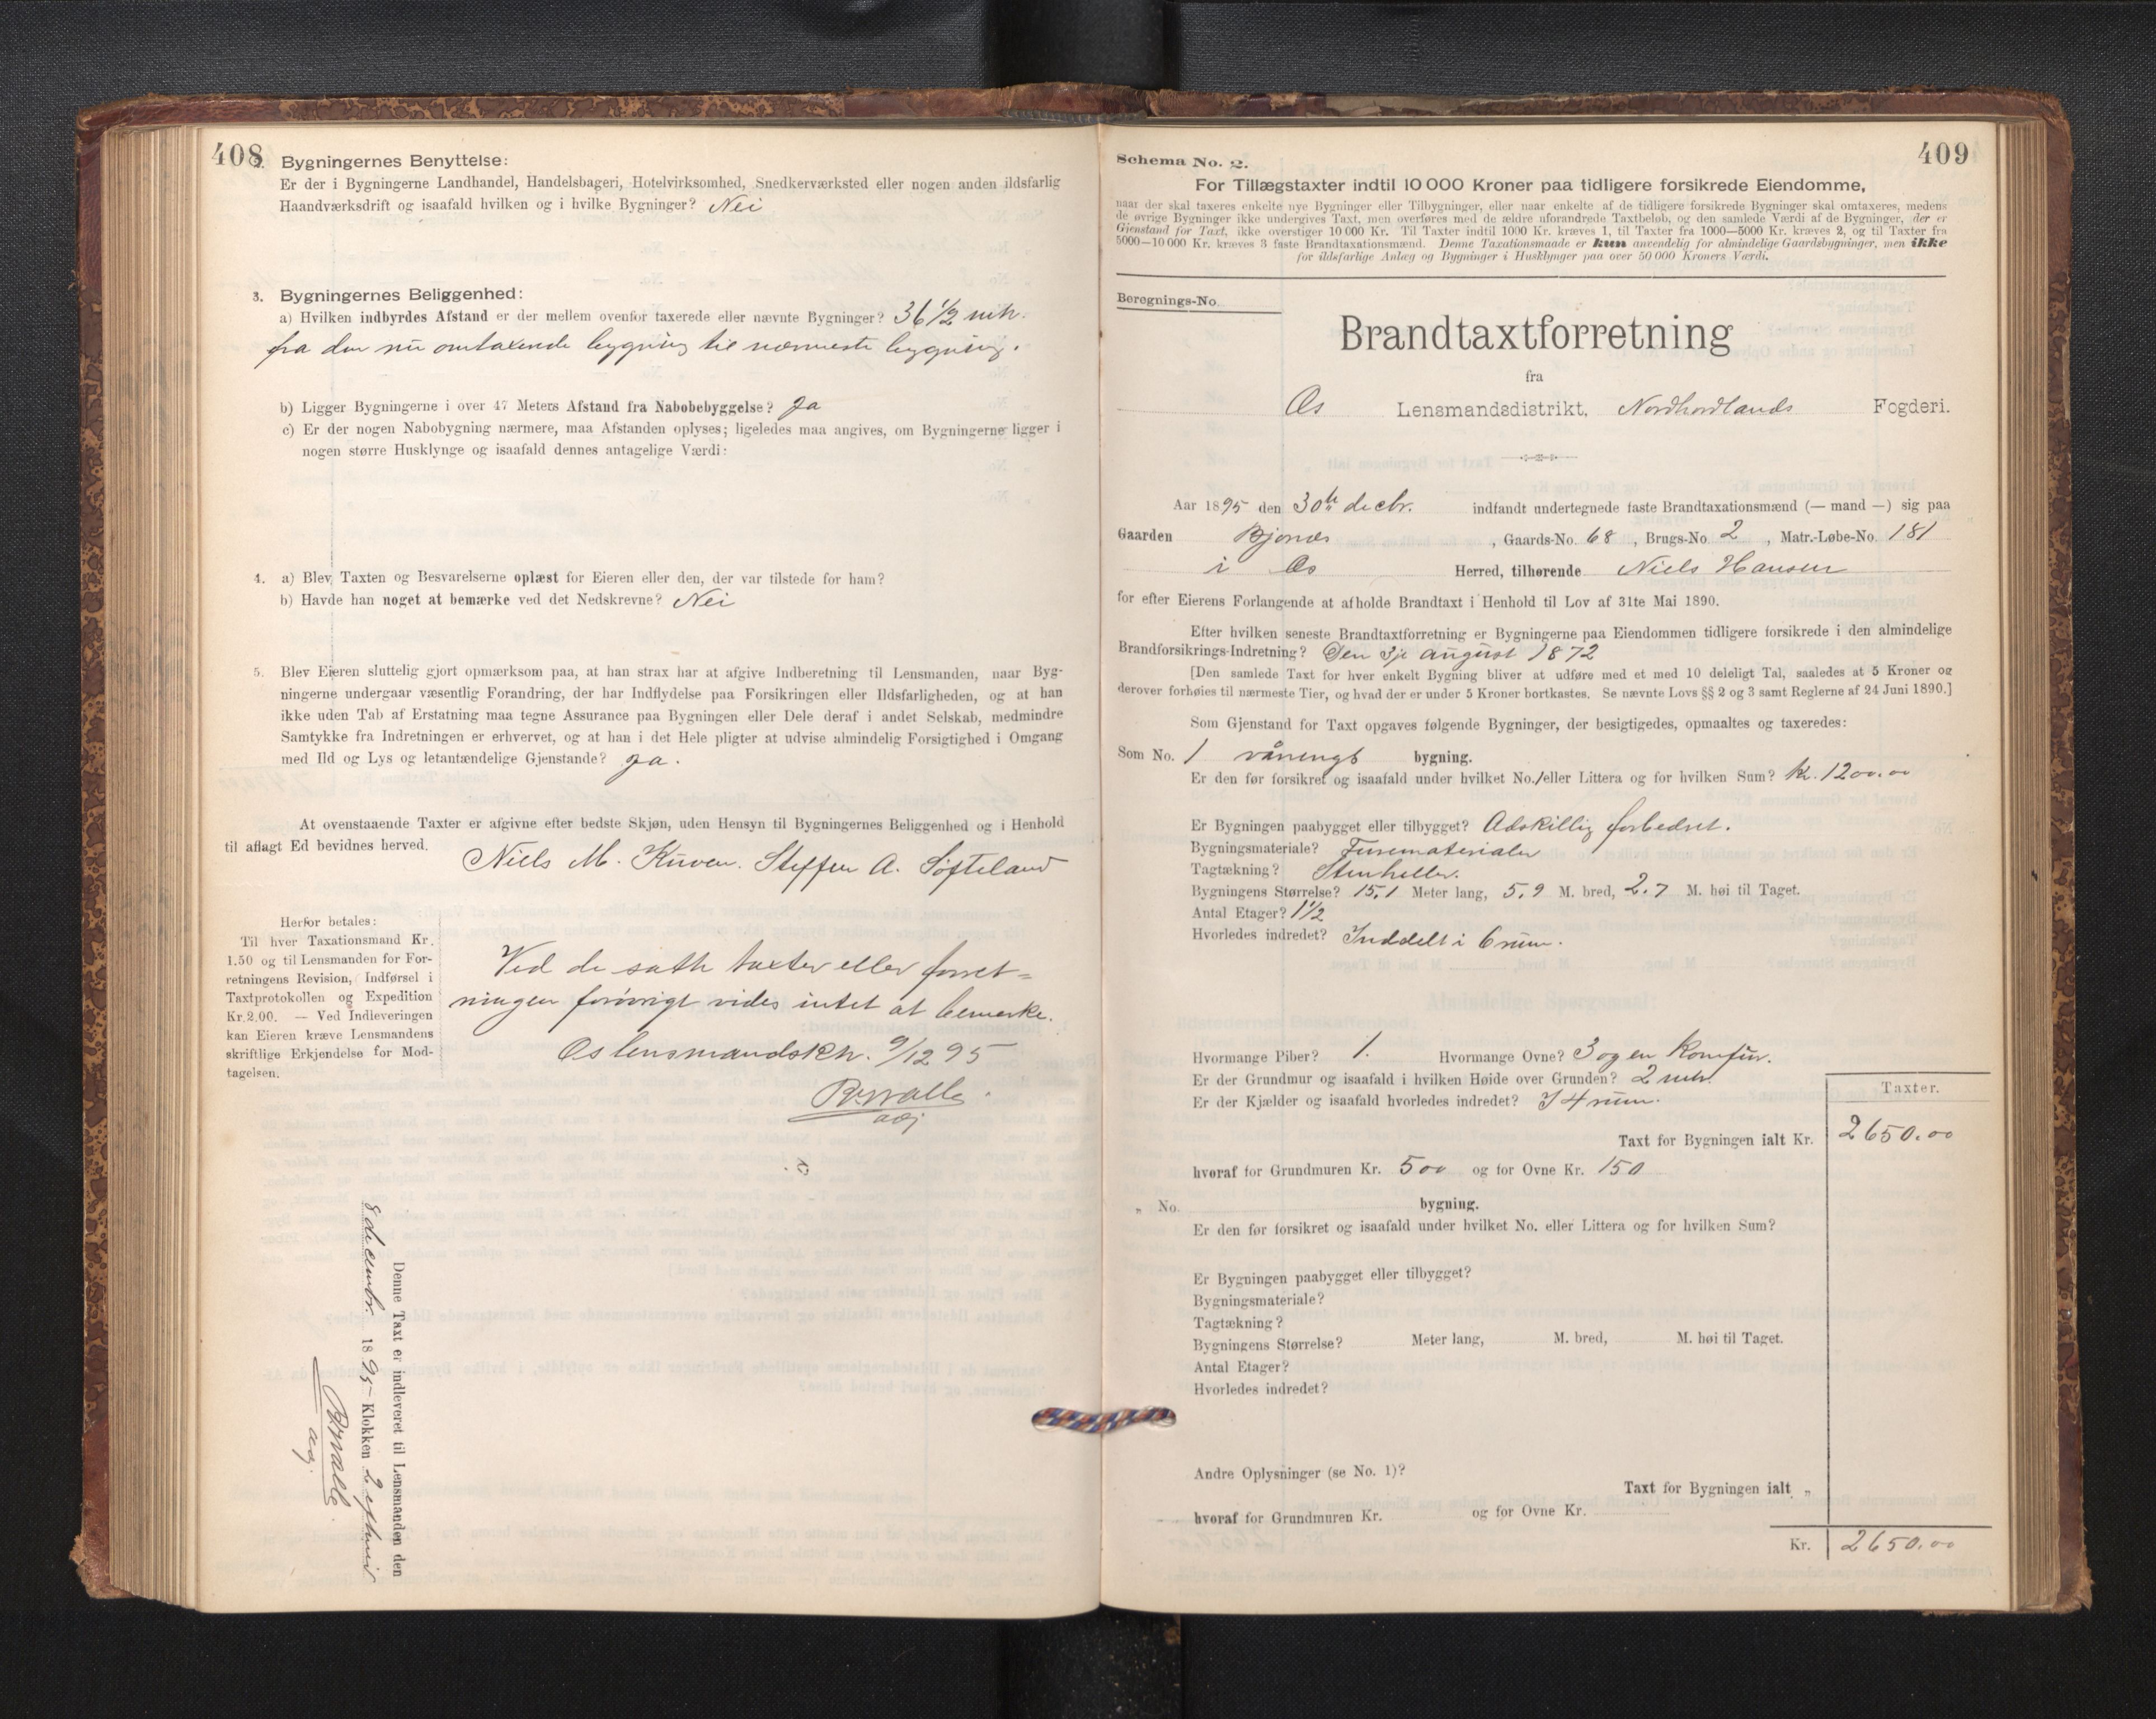 408
2. Bygningernes Benyttelse:
Er der i Bygningerne Landhandel, Handelsbageri, Hotelvirksomhed, Snedkerværksted eller nogen anden ildsfarlig
Haandværksdrift og isaafald hvilken og i hvilke Bygninger? Nei
3. Bygningernes Beliggenhed:
a) Hvilken indbyrdes Afstand er der mellem ovenfor taxerede eller nævnte Bygninger? 36 1/2 mtr.
fra den nu omtaxende bygning til nærmeste bygning.
b) Ligger Bygningerne i over 47 Meters Afstand fra Nabobebyggelse? Ja
c) Er der nogen Nabobygning nærmere, maa Afstanden oplyses; ligeledes maa angives, om Bygningerne ligger i
nogen større Husklynge og isaafald dennes antagelige Værdi:
4. a) Blev Taxten og Besvarelserne oplæst for Eieren eller den, der var tilstede for ham?
b) Havde han noget at bemærke ved det Nedskrevne? Nei
5. Blev Eieren sluttelig gjort opmærksom paa, at han strax har at afgive Indberetning til Lensmanden, naar Byg-
ningerne undergaar væsentlig Forandring, der har Indflydelse paa Forsikringen eller Ildsfarligheden, og at han
ikke uden Tab af Erstatning maa tegne Assurance paa Bygningen eller Dele deraf i andet Selskab, medmindre
Samtykke fra Indretningen er erhvervet, og at han i det Hele pligter at udvise almindelig Forsigtighed i Omgang
med Ild og Lys og letantændelige Gjenstande? Ja.
At ovenstaaende Taxter er afgivne efter bedste Skjøn, uden Hensyn til Bygningernes Beliggenhed og i Henhold
til aflagt Ed bevidnes herved.
Niels M. Kuven. Steffen A. Søfteland
Herfor betales:
Til hver Taxationsmand Kr.
1.50 og til Lensmanden for For-
retningens Revision, Indførsel i
Taxtprotokollen og Expedition
Kr. 2.00. — Ved Indleveringen
kan Eieren kræve Lensmandens
skriftlige Erkjendelse for Mod-
tagelsen.
Ved de satte taxter eller forret-
ningen forøvrigt vides intet at bemærke.
Os lensmandsktr. 9/12 95
Denne Taxt er indleveret til Lensmanden den
8 decembr. 1895 Klokken 2 efterm
409
Schema No. 2.
For Tillægstaxter indtil 10 000 Kroner paa tidligere forsikrede Eiendomme,
naar der skal taxeres enkelte nye Bygninger eller Tilbygninger, eller naar enkelte af de tidligere forsikrede Bygninger skal omtaxeres, medens
de øvrige Bygninger ikke undergives Taxt, men overføres med de ældre uforandrede Taxtbeløb, og den samlede Værdi af de Bygninger, der er
Gjenstand for Taxt, ikke overstiger 10 000 Kr. Til Taxter indtil 1000 Kr. kræves 1, til Taxter fra 1000—5000 Kr. kræves 2, og til Taxter fra
5000—10 000 Kr. kræves 3 faste Brandtaxationsmænd. Denne Taxationsmaade er kun anvendelig for almindelige Gaardsbygninger, men ikke
for ildsfarlige Anlæg og Bygninger i Husklynger paa over 50 000 Kroners Værdi.
Beregnings-No.
Brandtaxtforretning
fra
Os Lensmandsdistrikt, Nordhordlands Fogderi.
Aar 1895 den 30te decbr. indfandt undertegnede faste Brandtaxationsmænd (— mand —) sig paa
Gaarden Bjønæs, Gaards-No. 68, Brugs-No. 2, Matr.-Løbe-No. 181
i Os Herred, tilhørende Niels Hansen
for efter Eierens Forlangende at afholde Brandtaxt i Henhold til Lov af 31te Mai 1890.
Efter hvilken seneste Brandtaxtforretning er Bygningerne paa Eiendommen tidligere forsikrede i den almindelige
Brandforsikrings-Indretning? Den 3je august 1872
[Den samlede Taxt for hver enkelt Bygning bliver at udføre med et med 10 deleligt Tal, saaledes at 5 Kroner og
derover forhøies til nærmeste Tier, og hvad der er under 5 Kroner bortkastes. Se nævnte Lovs §§ 2 og 3 samt Reglerne af 24 Juni 1890.]
Som Gjenstand for Taxt opgaves følgende Bygninger, der besigtigedes, opmaaltes og taxeredes:
Som No. 1 vånings bygning.
Er den før forsikret og isaafald under hvilket No. 1 eller Littera og for hvilken Sum? kr. 1200.00
Er Bygningen paabygget eller tilbygget? Adskillig forbedret.
Bygningsmateriale? Furumaterialer
Tagtækning? Stenheller.
Bygningens Størrelse? 15,1 Meter lang, 5,9 M. bred, 2,7 M. høi til Taget.
Antal Etager? 1 1/2
Hvorledes indredet? Inddelt i 6 rum.
Hvormange Piber? 1. Hvormange Ovne? 3 og en Komfur.
Er der Grundmur og isaafald i hvilken Høide over Grunden? 2 mtr.
Er der Kjælder og isaafald hvorledes indredet? I 4 rum.
Taxter.
Taxt for Bygningen ialt Kr. 2650.00
hvoraf for Grundmuren Kr. 500 og for Ovne Kr. 150
„ No. bygning.
Er den før forsikret og isaafald under hvilket No. eller Littera og for hvilken Sum?
Er Bygningen paabygget eller tilbygget?
Bygningsmateriale?
Tagtækning?
Bygningens Størrelse? Meter lang, M. bred, M. høi til Taget.
Antal Etager?
Hvorledes indredet?
Andre Oplysninger (se No. 1)?
Taxt for Bygningen ialt „
hvoraf for Grundmuren Kr. og for Ovne Kr.
Kr. 2650.00